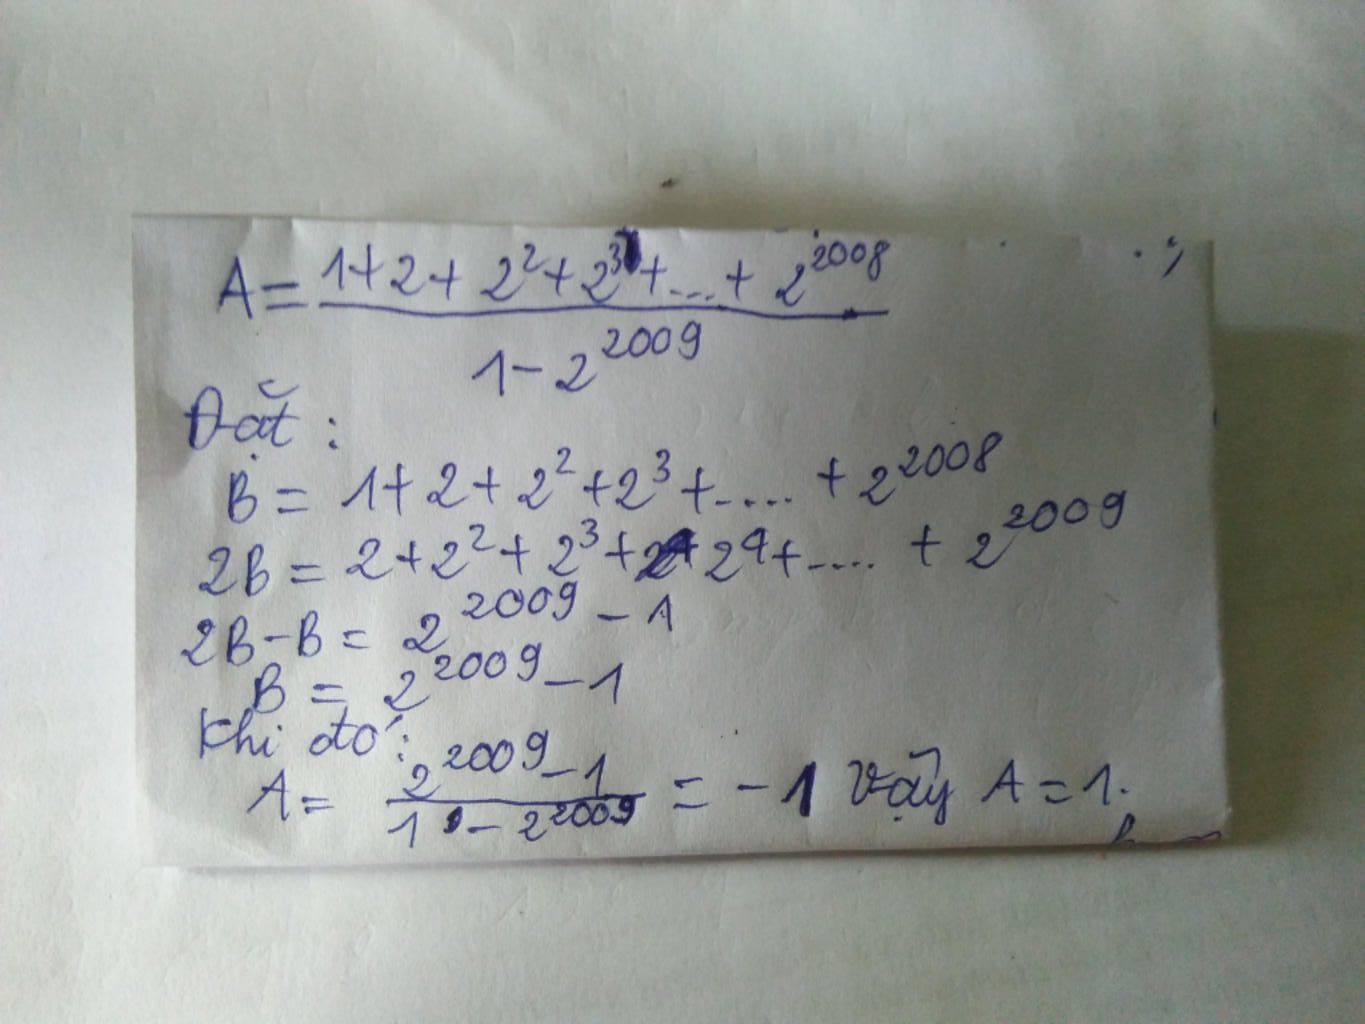 A = \frac{1+2+2^2+2^3+...+2^{2008}}{1-2^{2009}}
Đặt :
B = 1+2+2^2+2^3+.... +2^{2008}
2B = 2+2^2+2^3+2^4+.... + 2^{2009}
2B-B = 2^{2009} - 1
B = 2^{2009} - 1
Khi đó :
A = \frac{2^{2009}-1}{1-2^{2009}} = -1 Vậy A = 1.